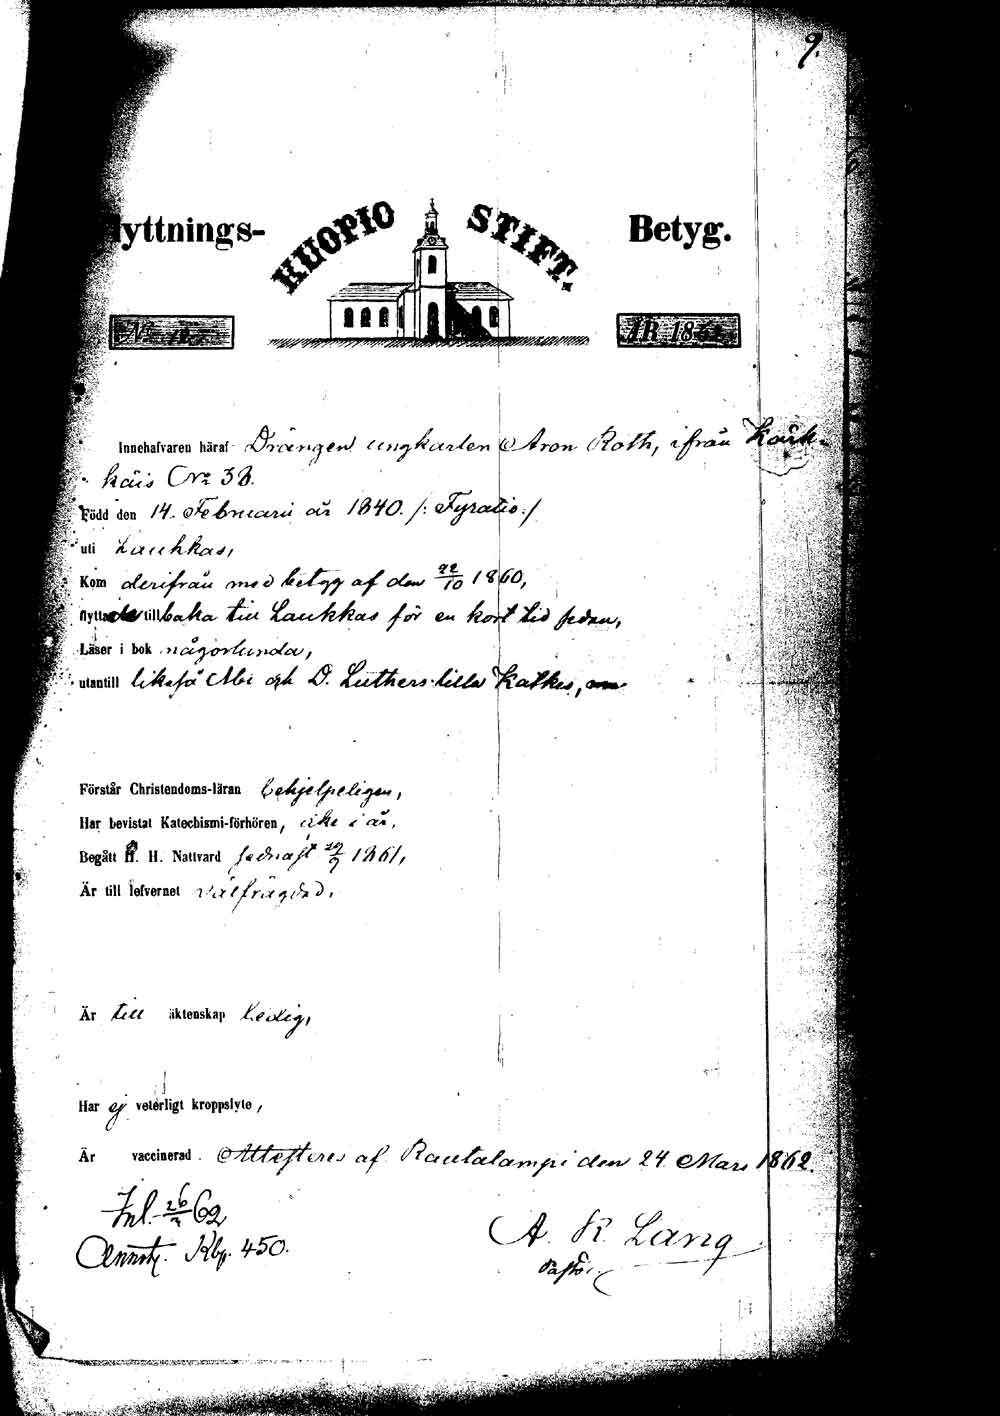 9.
lyttnings- KUOPIO STIFT. Betyg.
N:o ÅR 1862
Innehafvaren häraf Drängen ungkarlen Aron Roth, ifrån Kärk-
käis No 3B.
Född den 14. Februarii år 1840. /: Fyratio :/
uti Laukkas,
Kom derifrån med betyg af den 22/10 1860,
flyttade tillbaka till Laukkas för en kort tid sedan,
Läser i bok någorlunda,
utantill likaså Abc och D. Luthers lilla Katkes,
Förstår Christendoms-läran behjelpeligen,
Har bevistat Katechismi-förhören, icke i år,
Begått H. H. Nattvard sednast 29/9 1861,
Är till lefvernet välfrägdad,
Är till äktenskap ledig,
Har ej veterligt kroppslyte,
Är vaccinerad. Attesteres af Rautalampi den 24 Mars 1862.
Inl. 26/3 62
Annot. Kbp. 450.
A. R. Lang
Pastor.